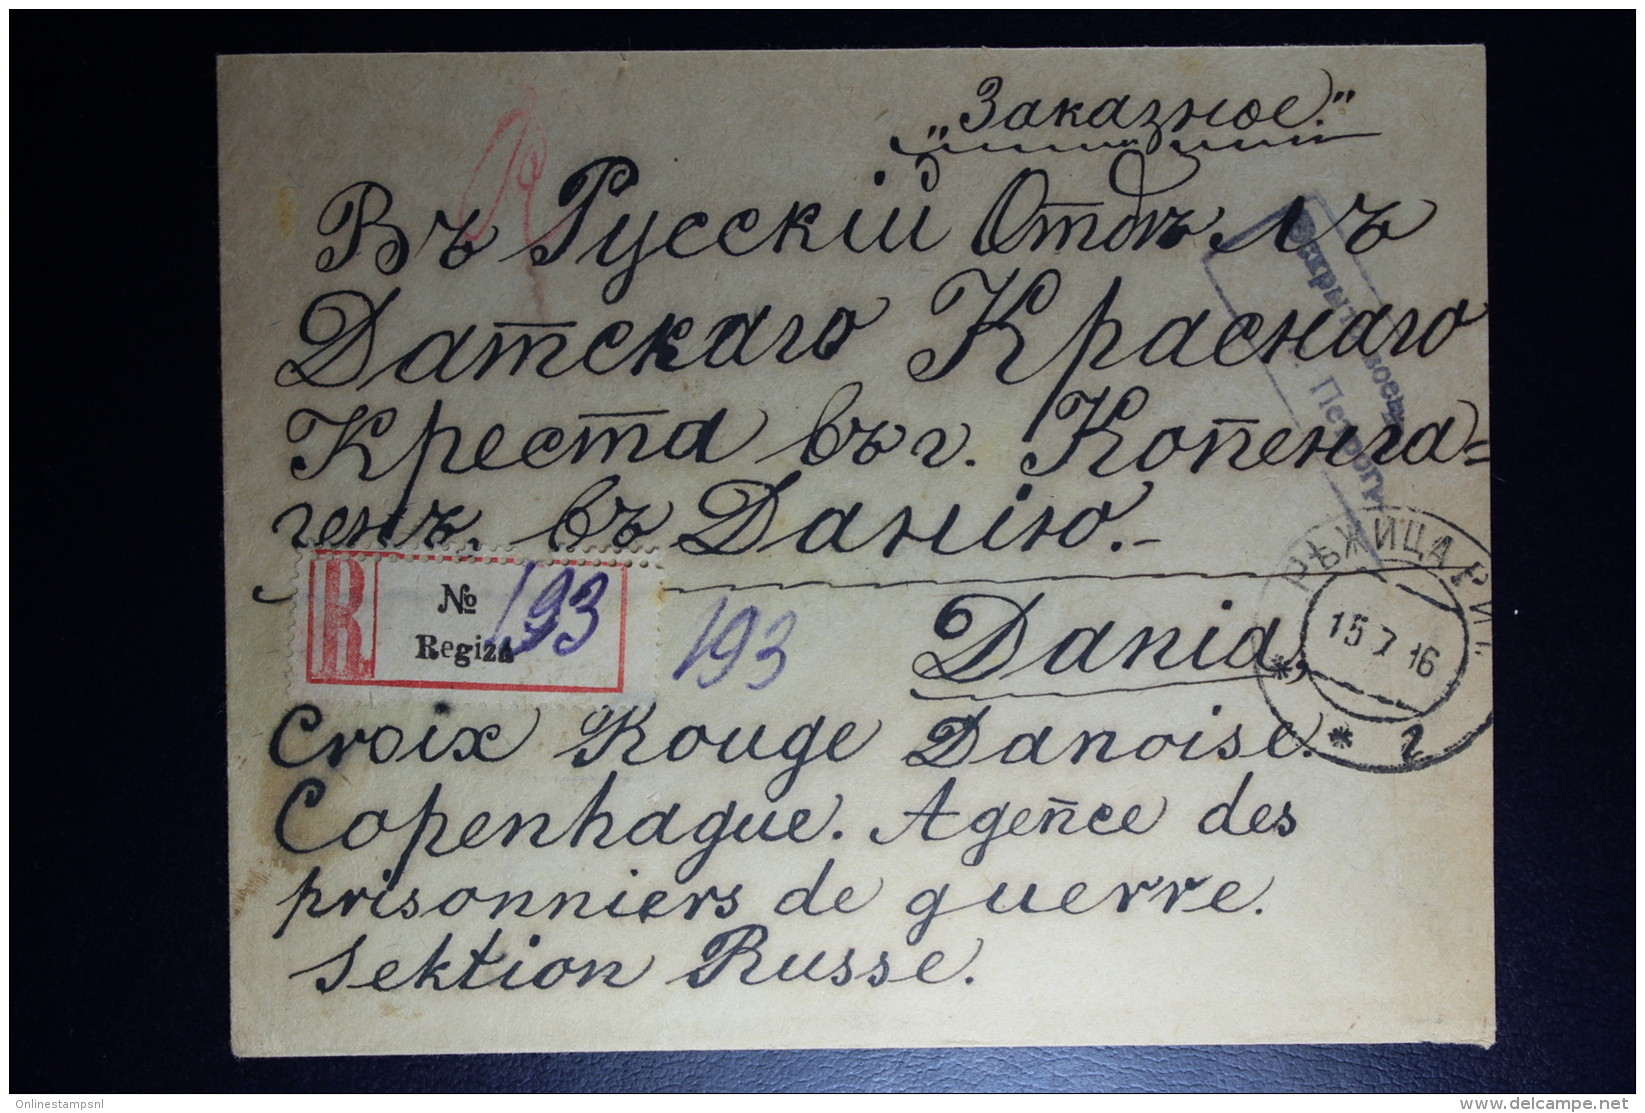 „Заказное."
Въ Русскій Отдѣлъ
Датскаго Краснаго
Креста въ г. Копенга=
генъ. въ Данію.-
R.
№ 193
Regiza
193
РѢЖИЦА
15 7 16
Dania,
Croix Rouge Danoise.
Copenhague. Agence des
prisonniers de guerre.
Sektion Russe.
Onlinestampsnl
www.delcampe.net